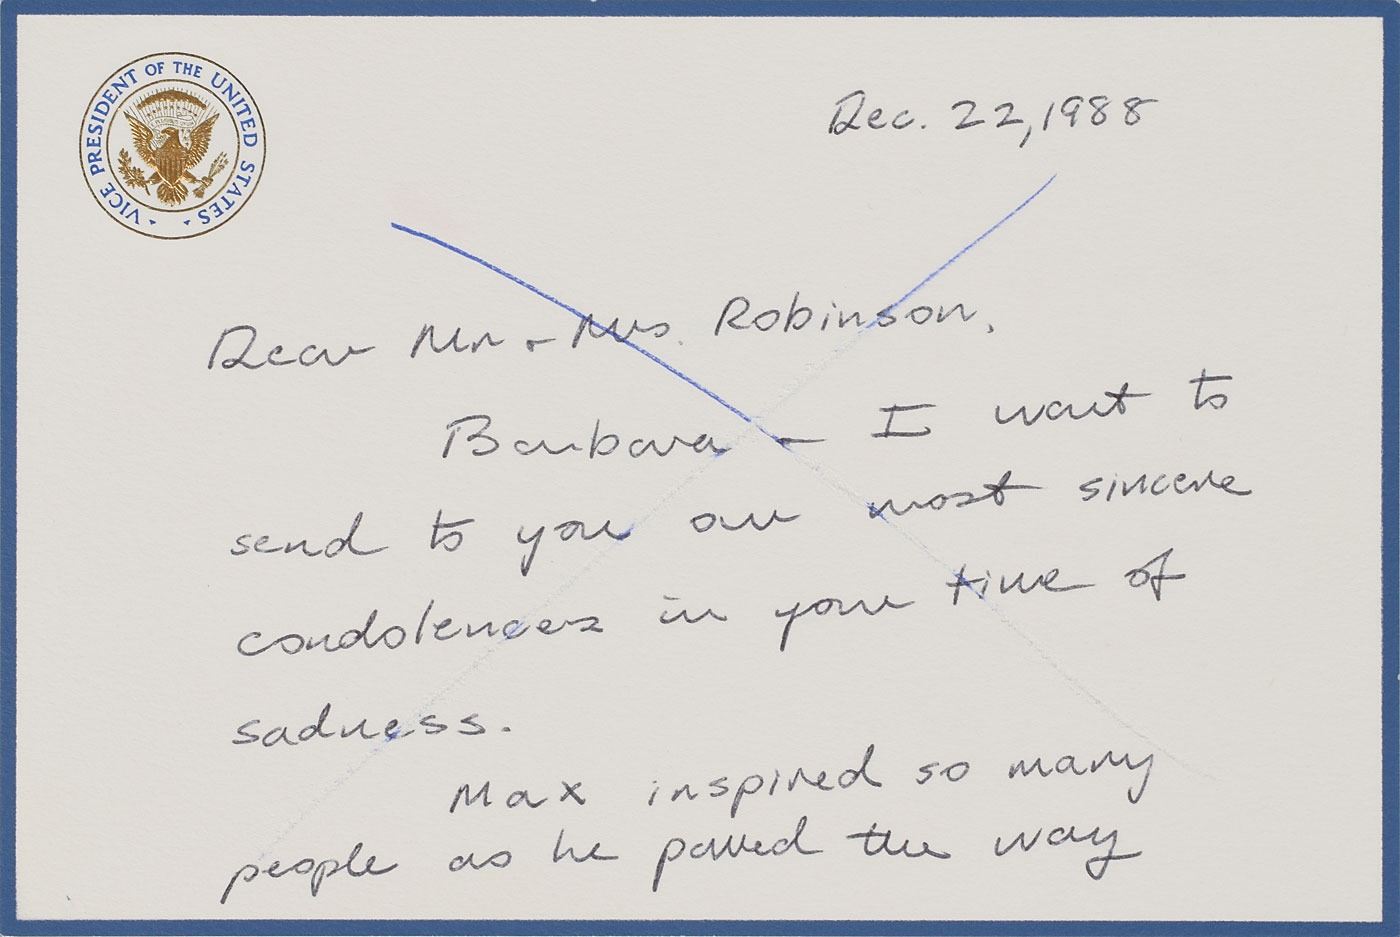 VICE PRESIDENT OF THE UNITED STATES
Dec. 22, 1988
Dear Mr + Mrs. Robinson,
Barbara + I want to
send to you our most sincere
condolences in your time of
sadness.
Max inspired so many
people as he paved the way